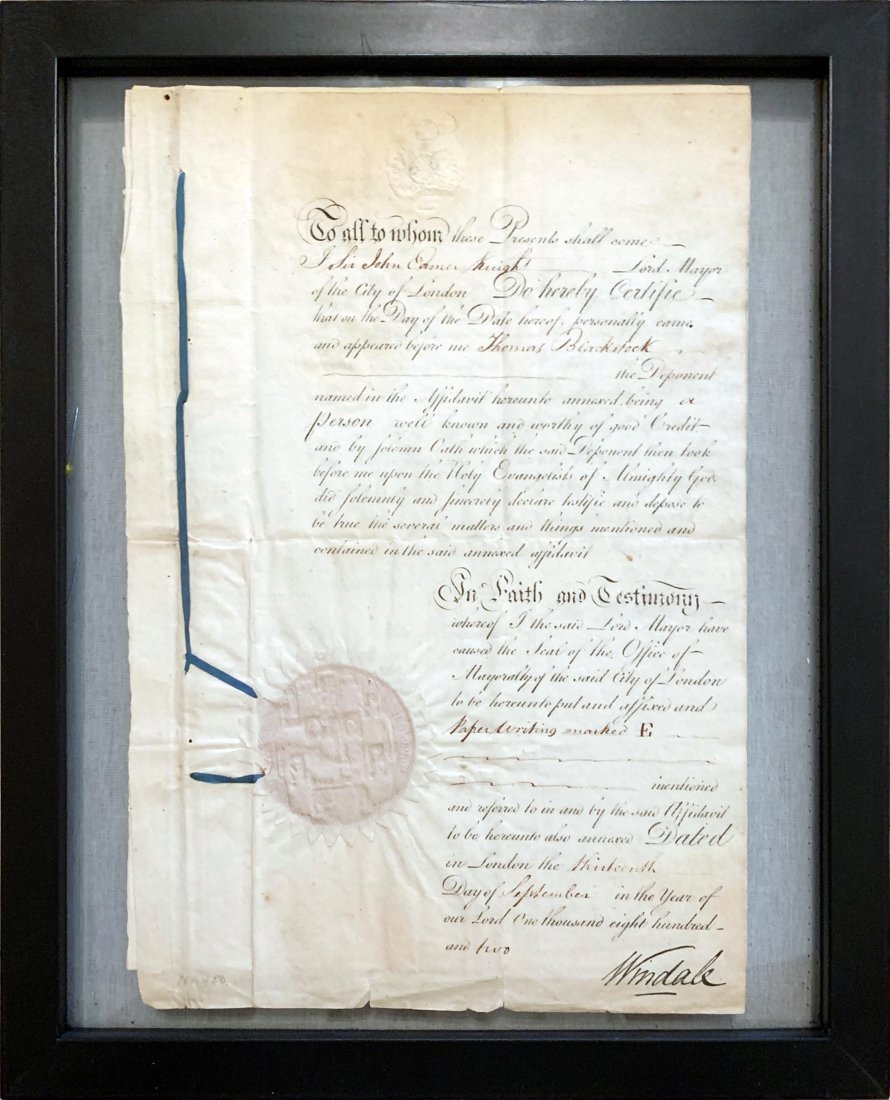 To all to whom these Presents shall come
I Sir John Eamer Knight Lord Mayor
of the City of London Do hereby Certifie
that on the Day of the Date hereof, personally came
and appeared before me Thomas Blackstock
the Deponent
named in the Affidavit hereunto annexed, being a
person well known and worthy of good Credit
and by solemn Oath which the said Deponent then took
before me upon the Holy Evangelists of Almighty God
did solemnly and sincerely declare testifie and depose to
be true the several matters and things mentioned and
contained in the said annexed affidavit
In Faith and Testimony
whereof I the said Lord Mayor have
caused the Seal of the Office of
Mayoralty of the said City of London
to be hereunto put and affixed and
Paper Writing marked E
mentioned
and referred to in and by the said Affidavit
to be hereunto also annexed Dated
in London the thirteenth
Day of September in the Year of
our Lord One thousand eight hundred
and two
Windale